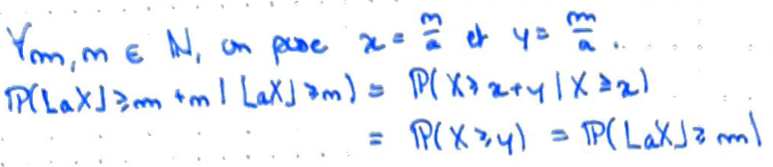 ∀m,n ∈ ℕ, on pose x = m/a et y = n/a.
ℙ(⌊aX⌋ ⩾ m+n | ⌊aX⌋ ⩾ m) = ℙ(X ⩾ x+y | X ⩾ x)
= ℙ(X ⩾ y) = ℙ(⌊aX⌋ ⩾ n)